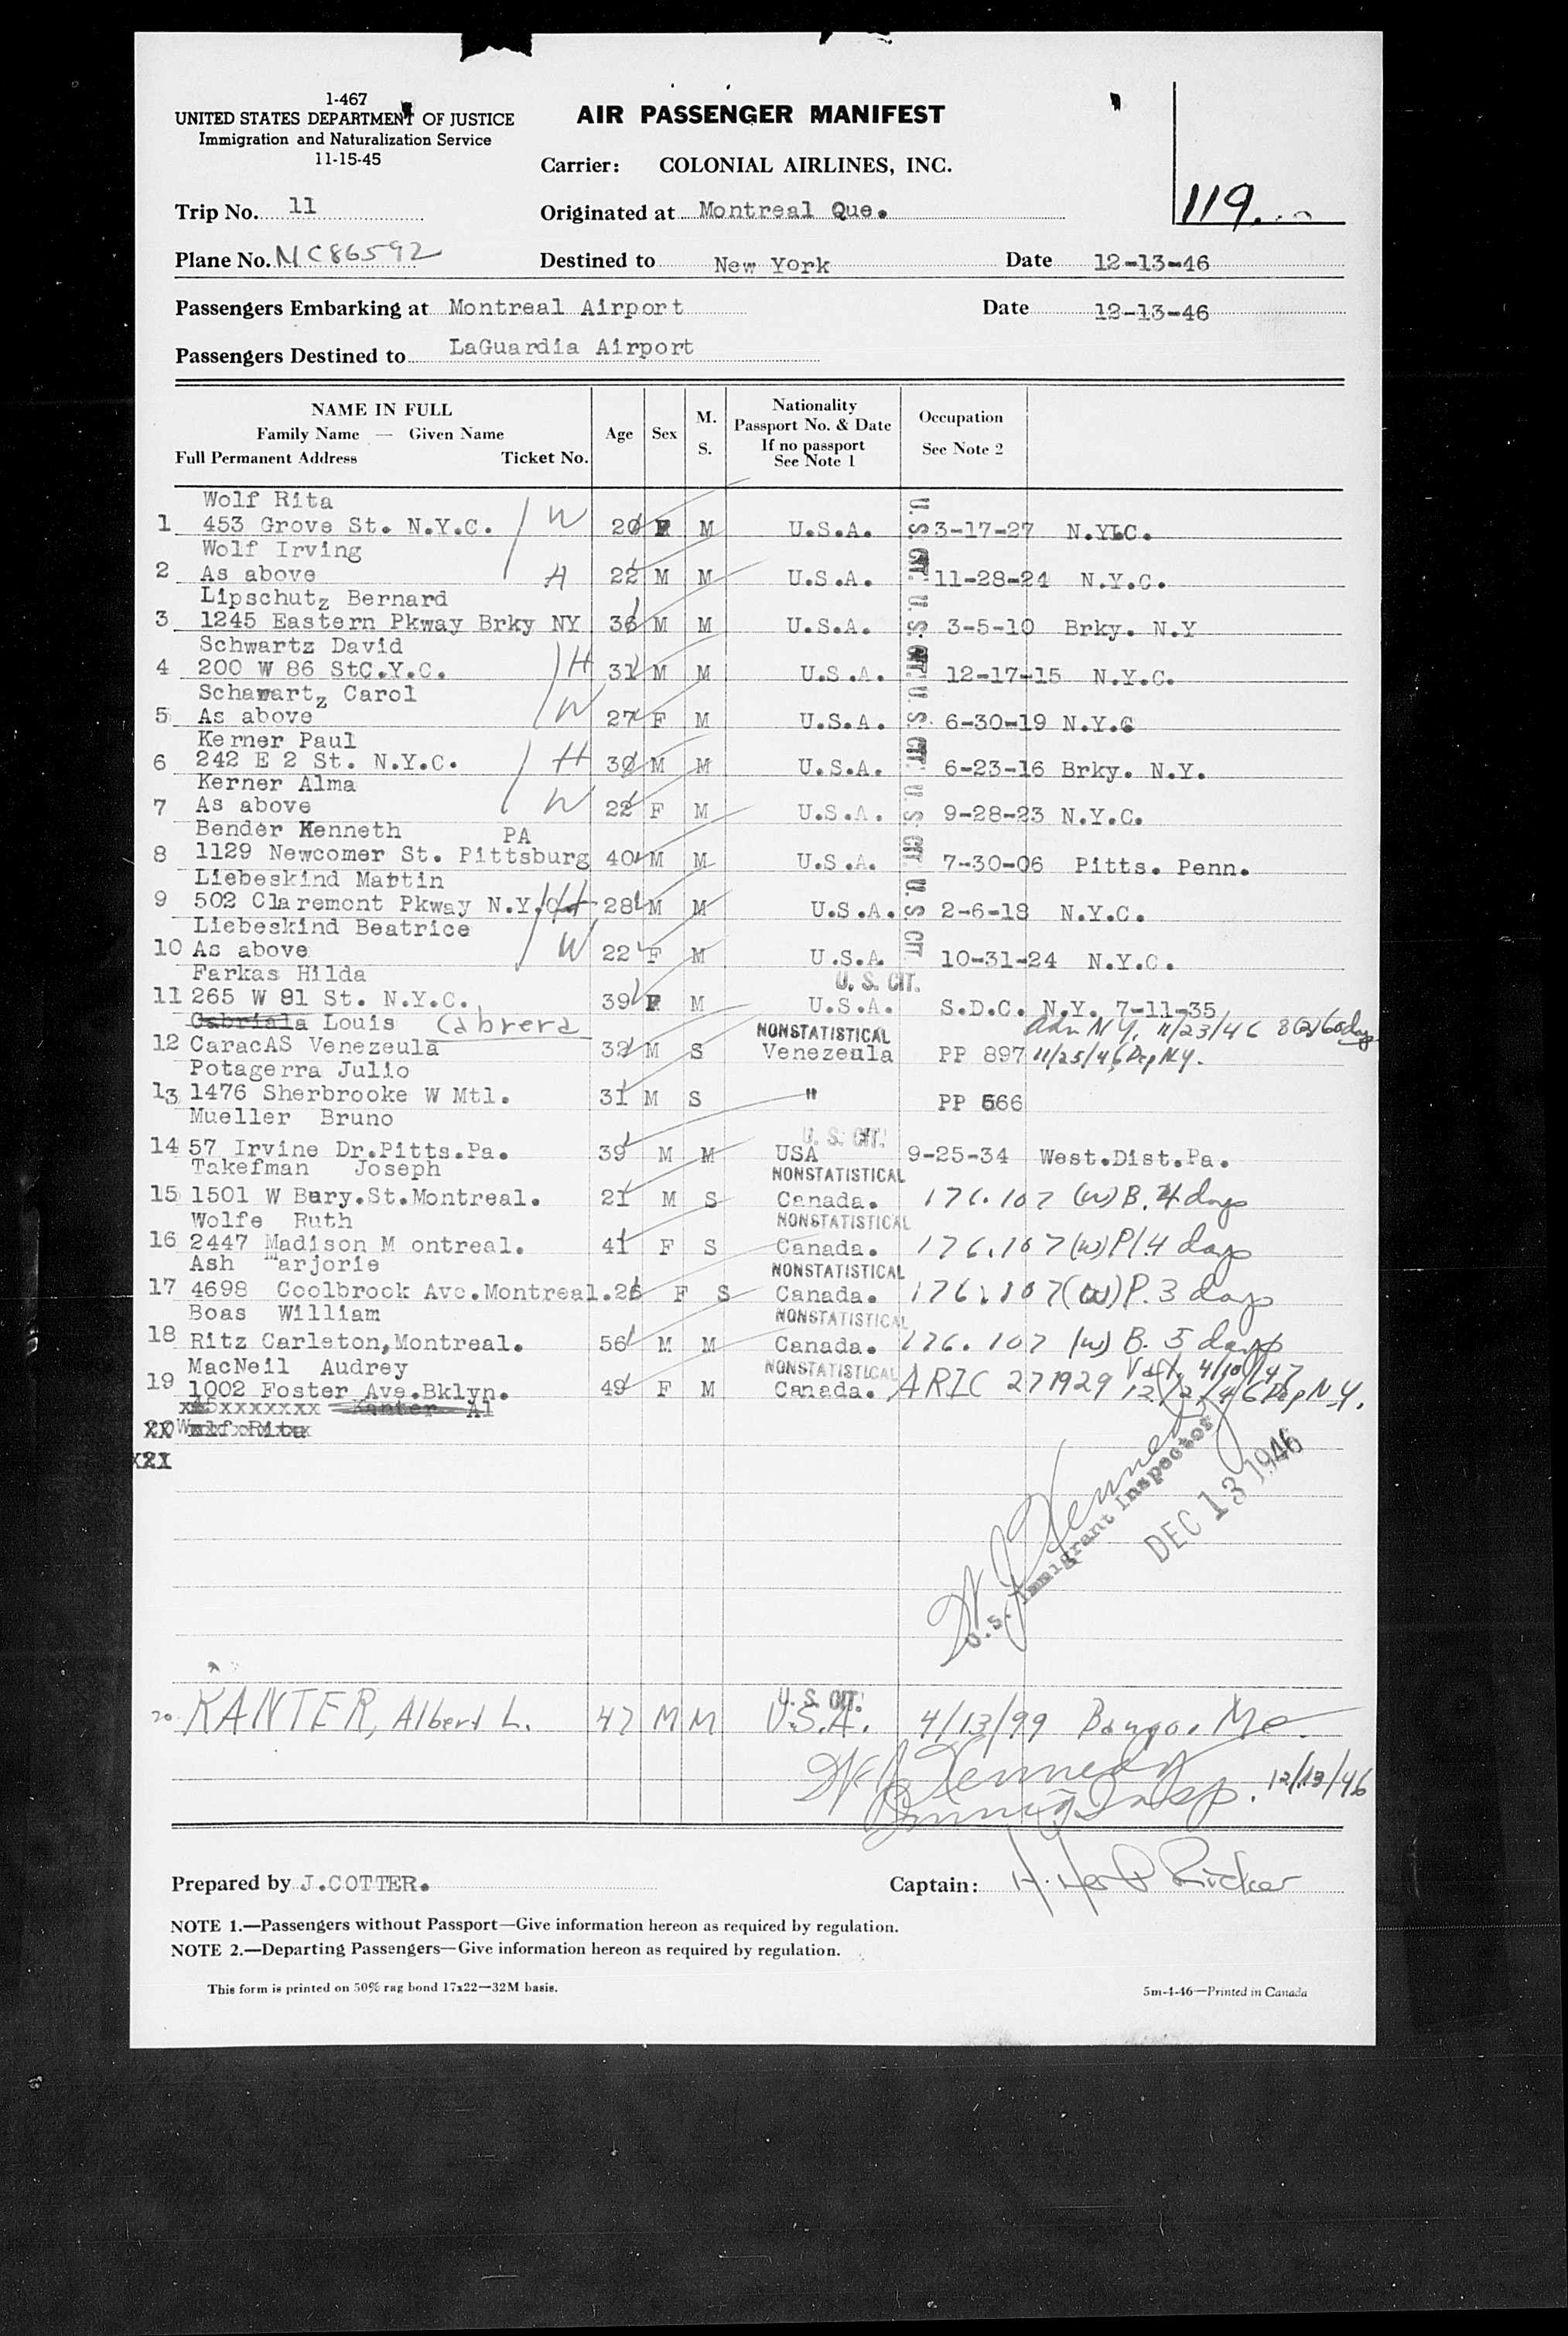 1-467
UNITED STATES DEPARTMENT OF JUSTICE
Immigration and Naturalization Service
11-15-45
AIR PASSENGER MANIFEST
Carrier: COLONIAL AIRLINES, INC.
119
Trip No. 11
Originated at Montreal Que.
Plane No. NC86592
Destined to New York
Date 12-13-46
Passengers Embarking at Montreal Airport
Date 12-13-46
Passengers Destined to LaGuardia Airport
NAME IN FULL
Family Name — Given Name
Full Permanent Address Ticket No.
Age
Sex
M.
S.
Nationality
Passport No. & Date
If no passport
See Note 1
Occupation
See Note 2
Wolf Rita
1 453 Grove St. N.Y.C. W 20 F M U.S.A. U.S. CIT. 3-17-27 N.Y.C.
Wolf Irving
2 As above H 22 M M U.S.A. 11-28-24 N.Y.C.
Lipschutz Bernard
3 1245 Eastern Pkway Brky NY 36 M M U.S.A. U.S. CIT. 3-5-10 Brky. N.Y
Schwartz David
4 200 W 86 StC.Y.C. H 31 M M U.S.A. 12-17-15 N.Y.C.
Schawartz Carol
5 As above W 27 F M U.S.A. U.S. CIT. 6-30-19 N.Y.C
Kerner Paul
6 242 E 2 St. N.Y.C. H 30 M M U.S.A. 6-23-16 Brky. N.Y.
Kerner Alma
7 As above W 22 F M U.S.A. U.S. CIT. 9-28-23 N.Y.C.
Bender Kenneth PA
8 1129 Newcomer St. Pittsburg 40 M M U.S.A. 7-30-06 Pitts. Penn.
Liebeskind Martin
9 502 Claremont Pkway N.Y.C. H 28 M M U.S.A. U.S. CIT. 2-6-18 N.Y.C.
Liebeskind Beatrice
10 As above W 22 F M U.S.A. 10-31-24 N.Y.C.
Farkas Hilda U. S. CIT.
11 265 W 81 St. N.Y.C. 39 F M U.S.A. S.D.C. N.Y. 7-11-35
Cabriala Louis Cabrera NONSTATISTICAL Adm N.Y. 11/23/46 8(2) 60 days
12 CaracAS Venezeula 32 M S Venezeula PP 897 11/25/46 Dep N.Y.
Potagerra Julio
13 1476 Sherbrooke W Mtl. 31 M S " PP 566
Mueller Bruno U. S. CIT.
14 57 Irvine Dr.Pitts.Pa. 39 M M USA 9-25-34 West.Dist.Pa.
Takefman Joseph NONSTATISTICAL
15 1501 W Bury.St.Montreal. 21 M S Canada. 176.107 (w) B. 4 days
Wolfe Ruth NONSTATISTICAL
16 2447 Madison M ontreal. 41 F S Canada. 176.107 (w) Pl 4 days
Ash Marjorie NONSTATISTICAL
17 4698 Coolbrook Ave.Montreal. 26 F S Canada. 176.107 (w) P. 3 days
Boas William NONSTATISTICAL
18 Ritz Carleton,Montreal. 56 M M Canada. 176.107 (w) B. 5 days
MacNeil Audrey NONSTATISTICAL 4/10/47
19 1002 Foster Ave.Bklyn. 49 F M Canada. ARIC 271929 12/2/46 Dep N.Y.
Kanter Al
20 Wolf Rita
21
W J Kennedy
U.S. Immigrant Inspector
DEC 13 1946
U. S. CIT.
20 KANTER, Albert L. 47 M M U.S.A. 4/13/99 Bangor Me.
W J Kennedy
Immig Insp. 12/13/46
Prepared by J.COTTER.
Captain: H. Ricker
NOTE 1.—Passengers without Passport—Give information hereon as required by regulation.
NOTE 2.—Departing Passengers—Give information hereon as required by regulation.
This form is printed on 50% rag bond 17x22—32M basis.
5m-4-46—Printed in Canada